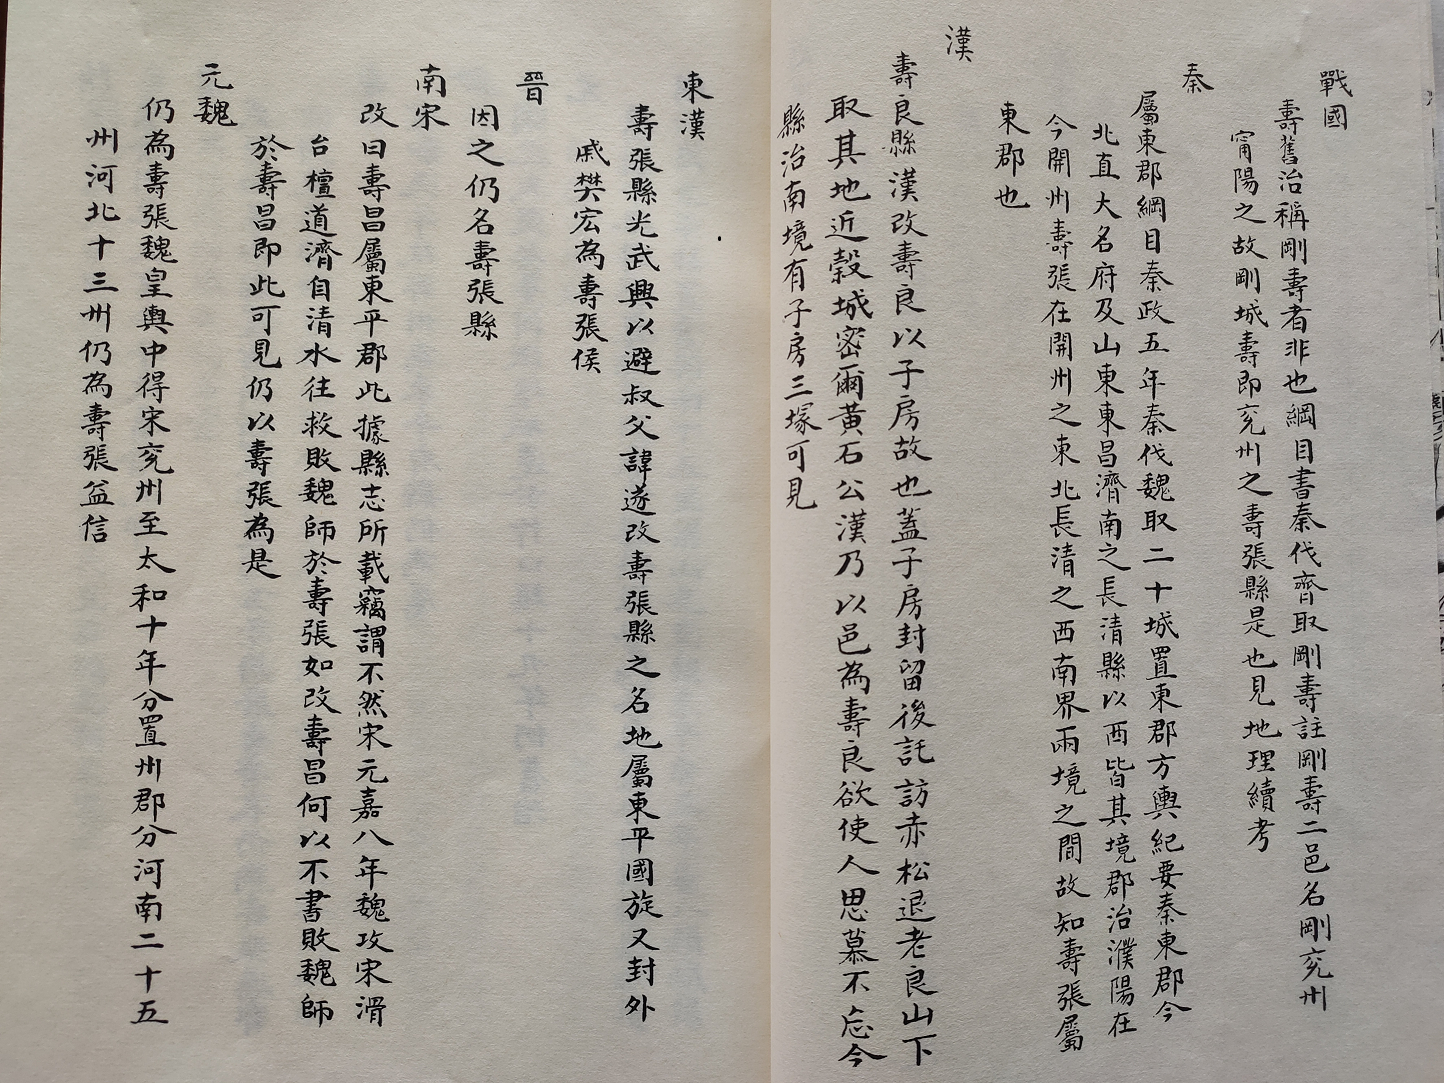 戰國
壽舊治稱剛壽者非也綱目書秦伐齊取剛壽註剛壽二邑名剛兖州
甯陽之故剛城壽即兖州之壽張縣是也見地理續考
秦
屬東郡綱目秦政五年秦伐魏取二十城置東郡方輿紀要秦東郡今
北直大名府及山東東昌濟南之長清縣以西皆其境郡治濮陽在
今開州壽張在開州之東北長清之西南界兩境之間故知壽張屬
東郡也
漢
壽良縣漢改壽良以子房故也蓋子房封留後託訪赤松退老良山下
取其地近穀城密爾黃石公漢乃以邑為壽良欲使人思慕不忘今
縣治南境有子房三塚可見
東漢
壽張縣光武興以避叔父諱遂改壽張縣之名地屬東平國旋又封外
戚樊宏為壽張侯
晉
因之仍名壽張縣
南宋
改曰壽昌屬東平郡此據縣志所載竊謂不然宋元嘉八年魏攻宋滑
台檀道濟自清水往救敗魏師於壽張如改壽昌何以不書敗魏師
於壽昌即此可見仍以壽張為是
元魏
仍為壽張魏皇輿中得宋兖州至太和十年分置州郡分河南二十五
州河北十三州仍為壽張益信